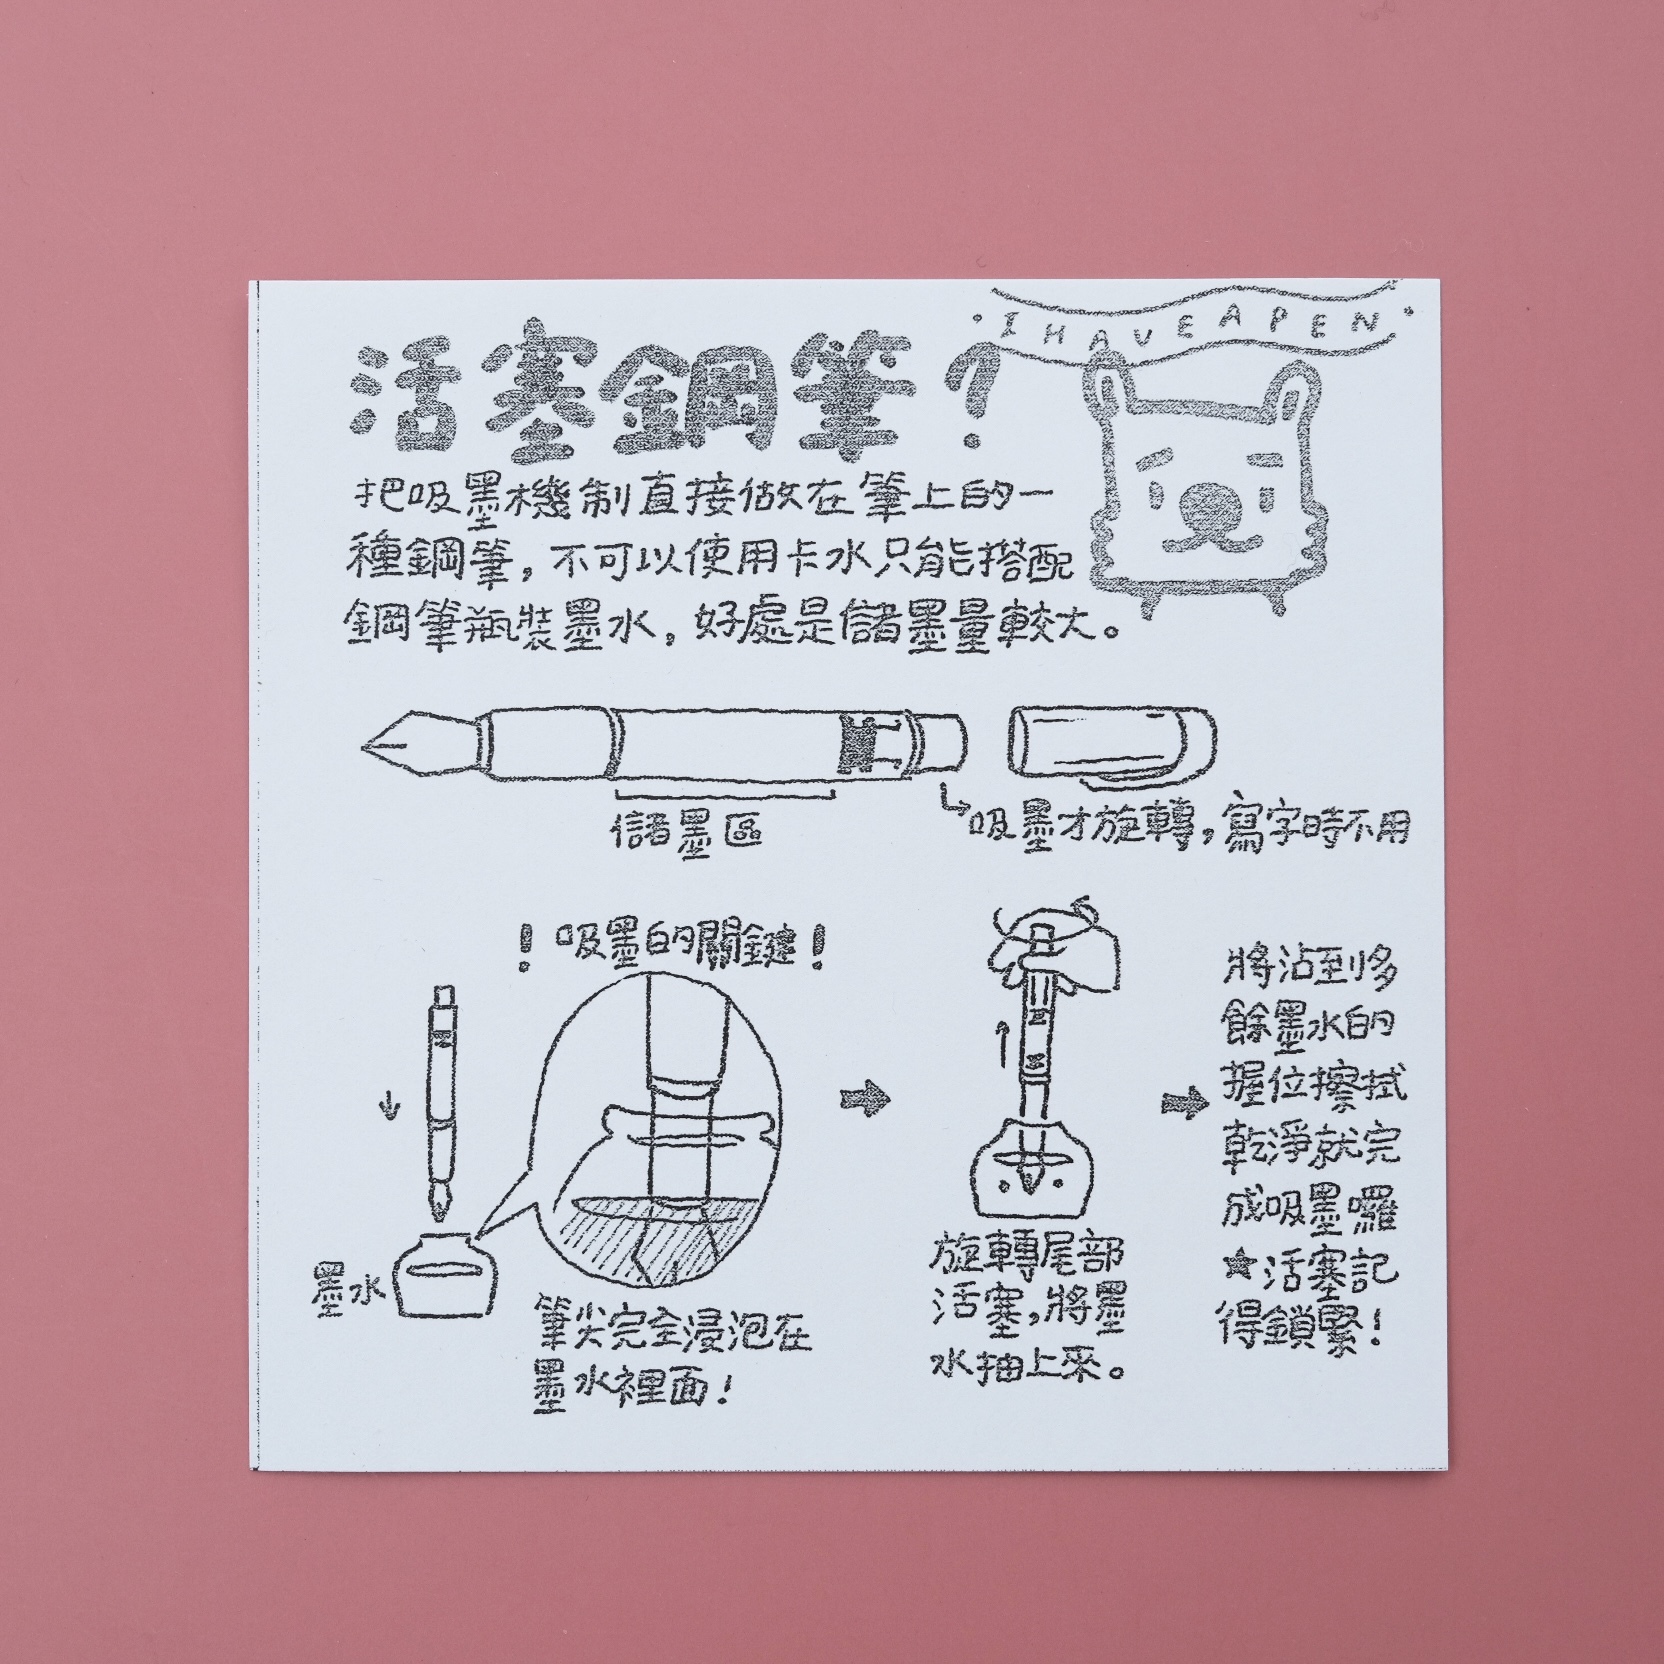 I HAVE A PEN
活塞鋼筆?
把吸墨機制直接做在筆上的一
種鋼筆，不可以使用卡水只能搭配
鋼筆瓶裝墨水，好處是儲墨量較大。
儲墨區
吸墨才旋轉，寫字時不用
!吸墨的關鍵!
墨水
筆尖完全浸泡在
墨水裡面!
旋轉尾部
活塞，將墨
水抽上來。
將沾到多
餘墨水的
握位擦拭
乾淨就完
成吸墨囉
★活塞記
得鎖緊!